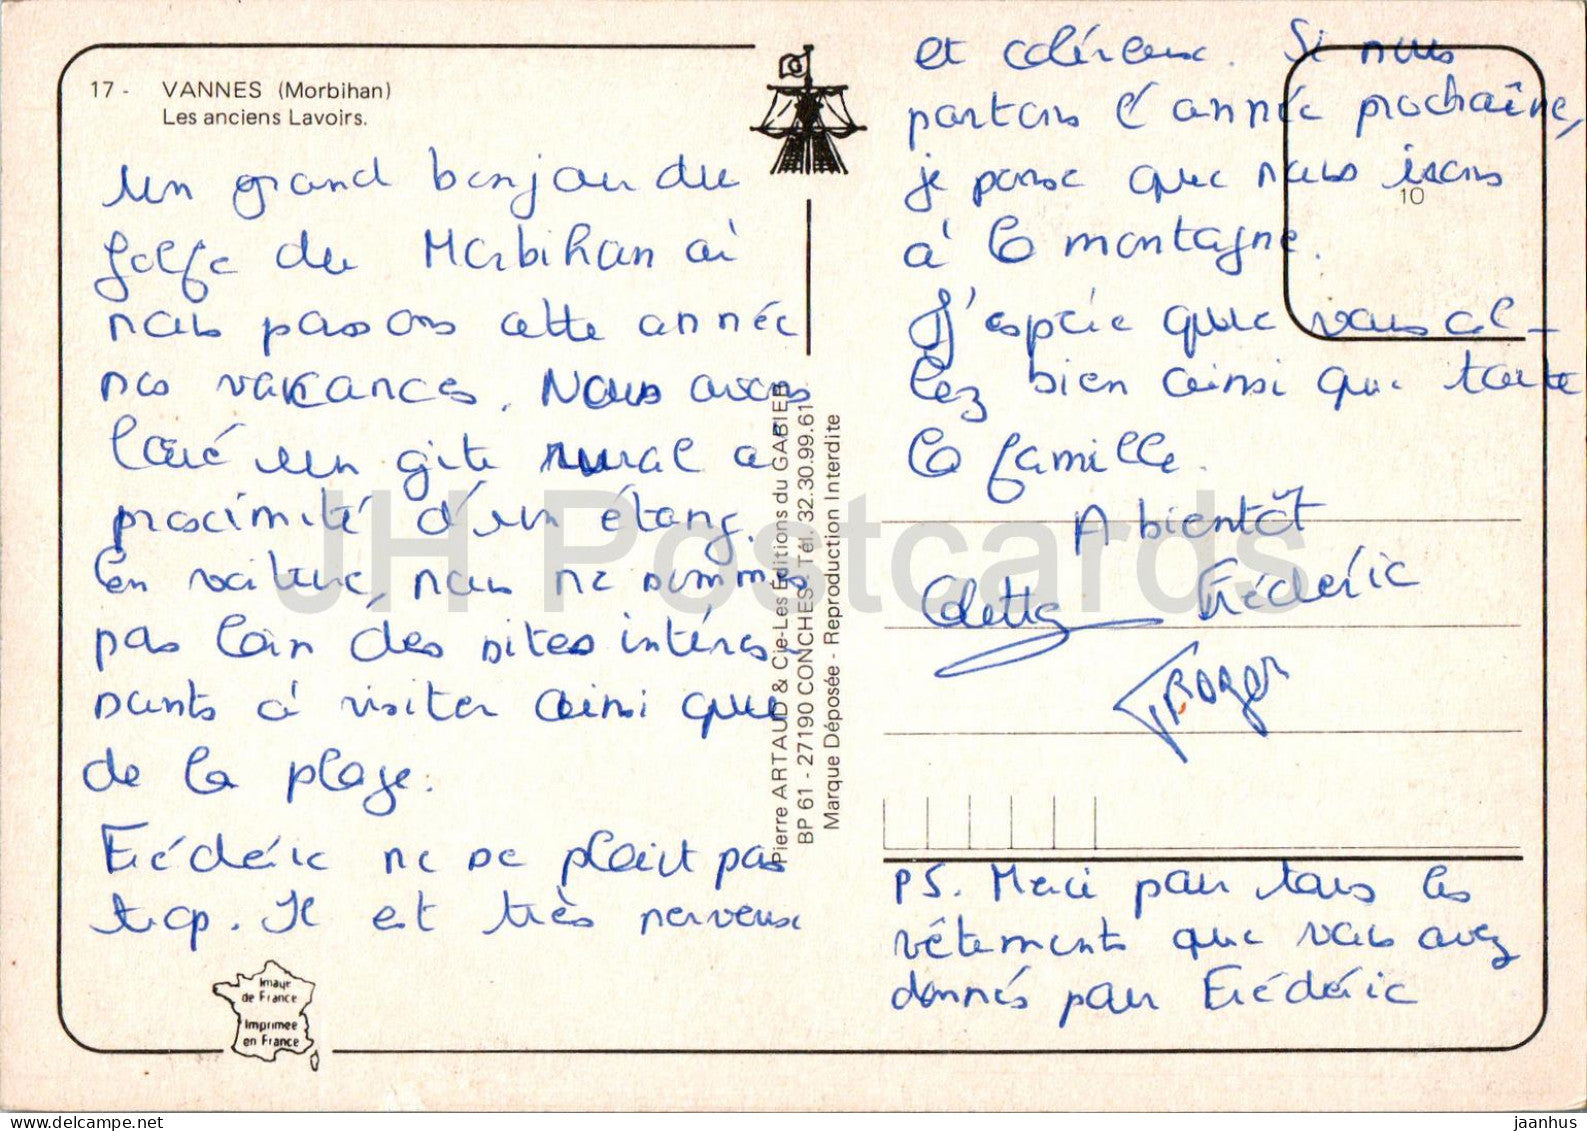 17 - VANNES (Morbihan)
Les anciens Lavoirs.
Un grand bonjour du
golfe du Morbihan où
nous passons cette année
nos vacances. Nous avons
loué un gite rural à
proximité d'un étang.
En voiture, nous ne sommes
pas loin des sites intéres-
sants à visiter ainsi que
de la plage.
Frédéric ne se plait pas
trop. Il est très nerveux
et coléreux. Si nous
partons l'année prochaîne,
je pense que nous irons
à la montagne.
J'espère que vous al-
lez bien ainsi que toute
la famille.
A bientôt
Colette Frédéric
Roger
PS. Merci pour tous les
vêtements que vous avez
donnés pour Frédéric
Pierre ARTAUD & Cie-Les Éditions du GABIER
BP 61 - 27190 CONCHES - Tél. 32.30.99.61
Marque Déposée - Reproduction Interdite
10
Image
de France
Imprimée
en France
JH Postcards
www.delcampe.net
jaanhus